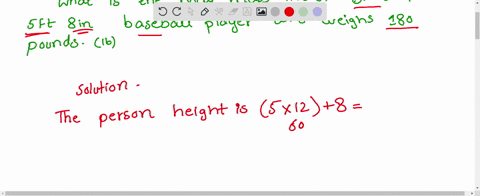 What is the
5ft 8in baseball player weighs 180
pounds. (lb)
Solution.
The person height is (5x12)+8=
60